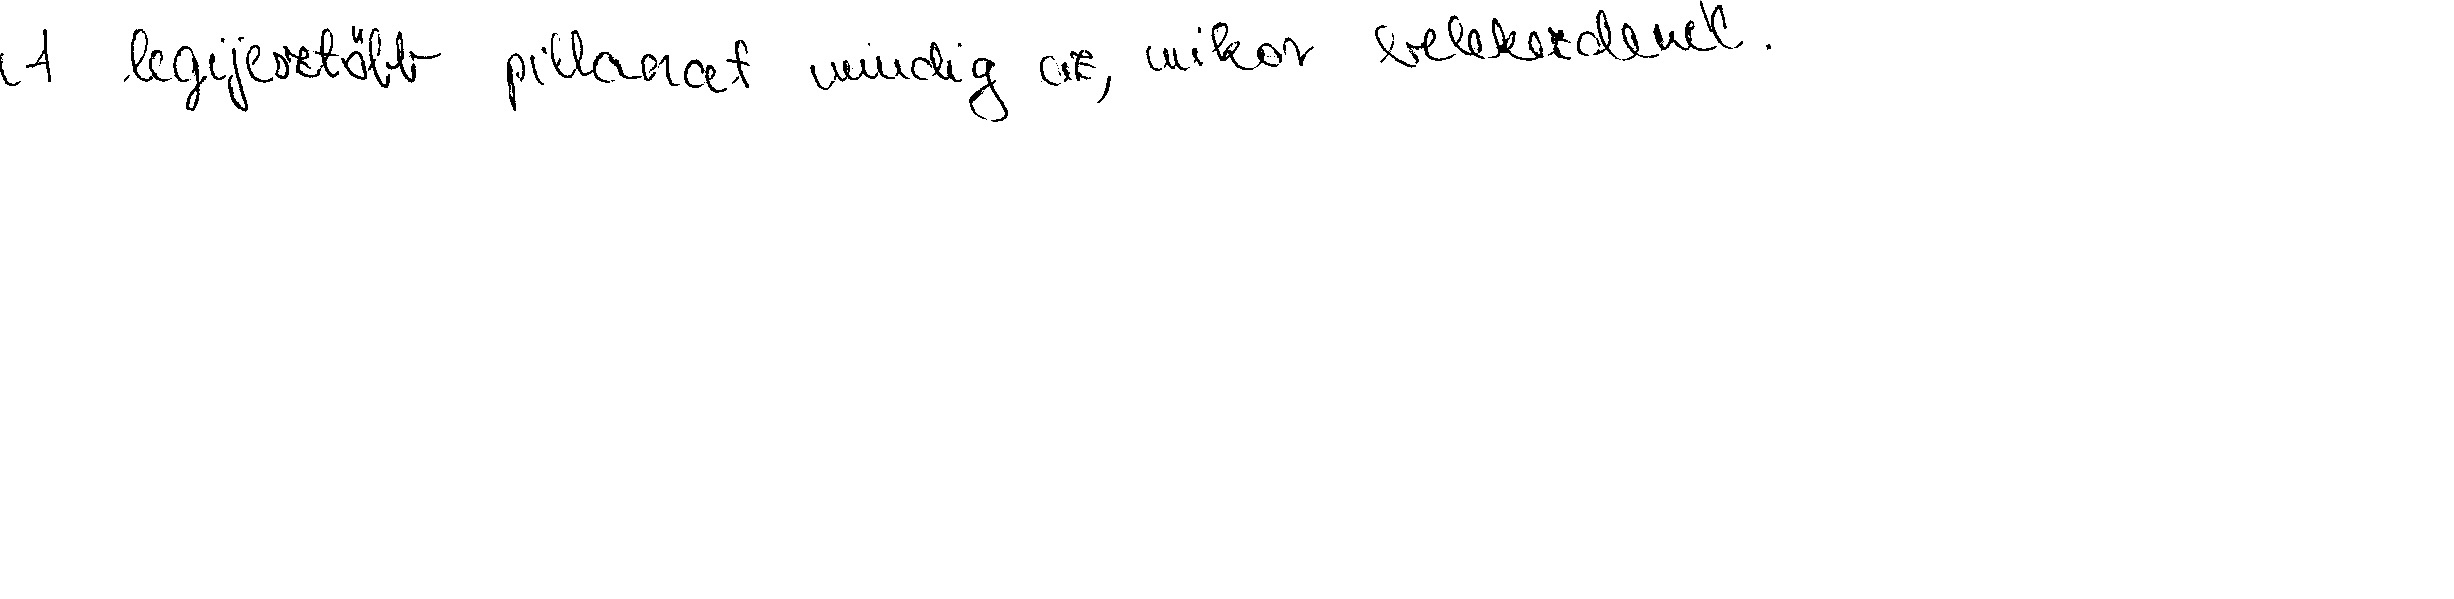 A legijesztőbb pillanat mindig az, mikor belekezdenek.